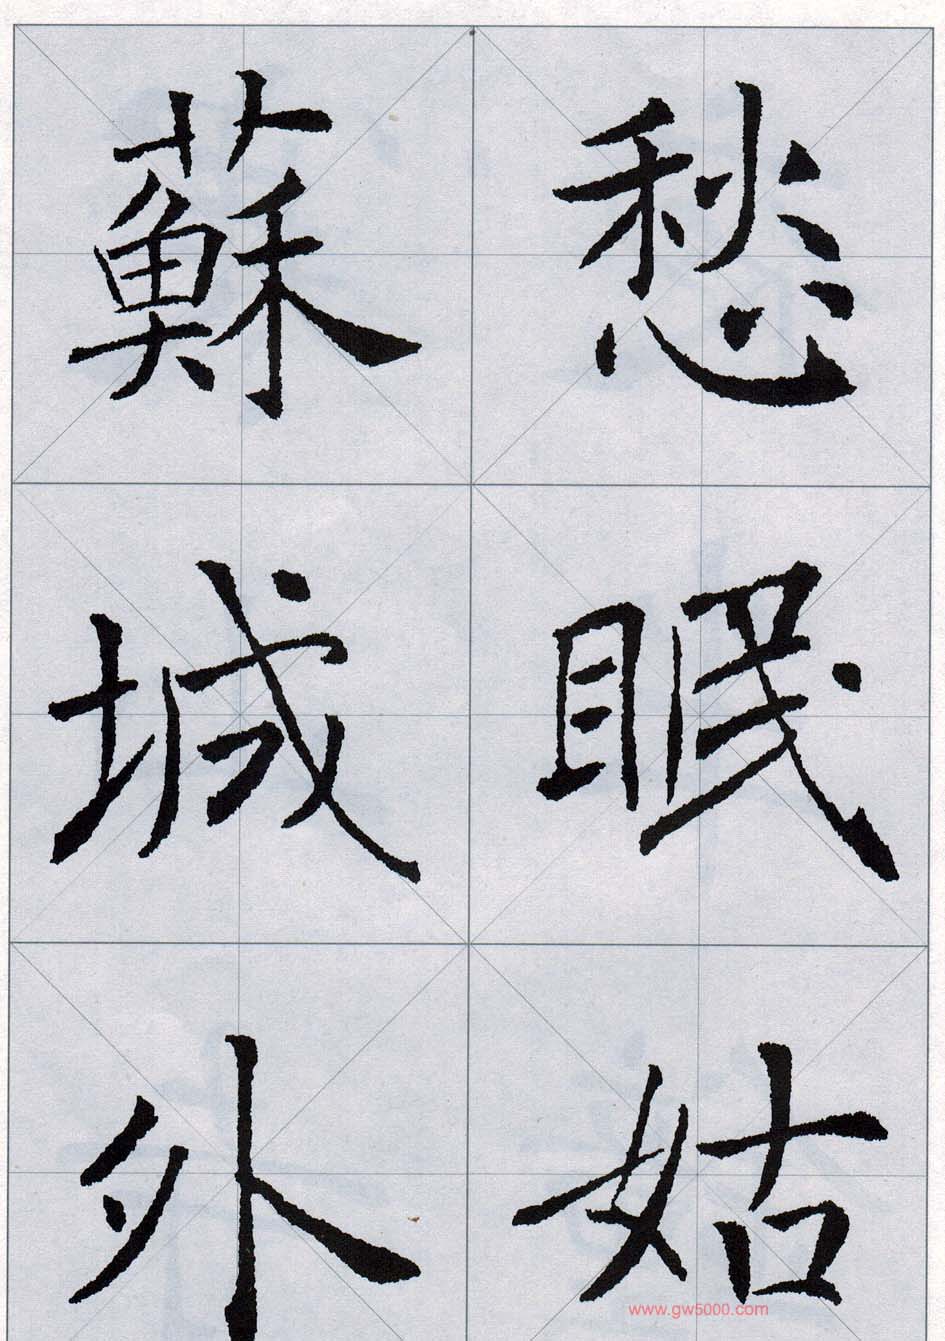 愁眠姑
蘇城外
www.gw5000.com